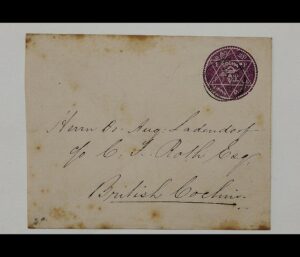 Herrn Dr. Aug. Ladendorf
c/o C. F. Roth Esq.
British Cochin